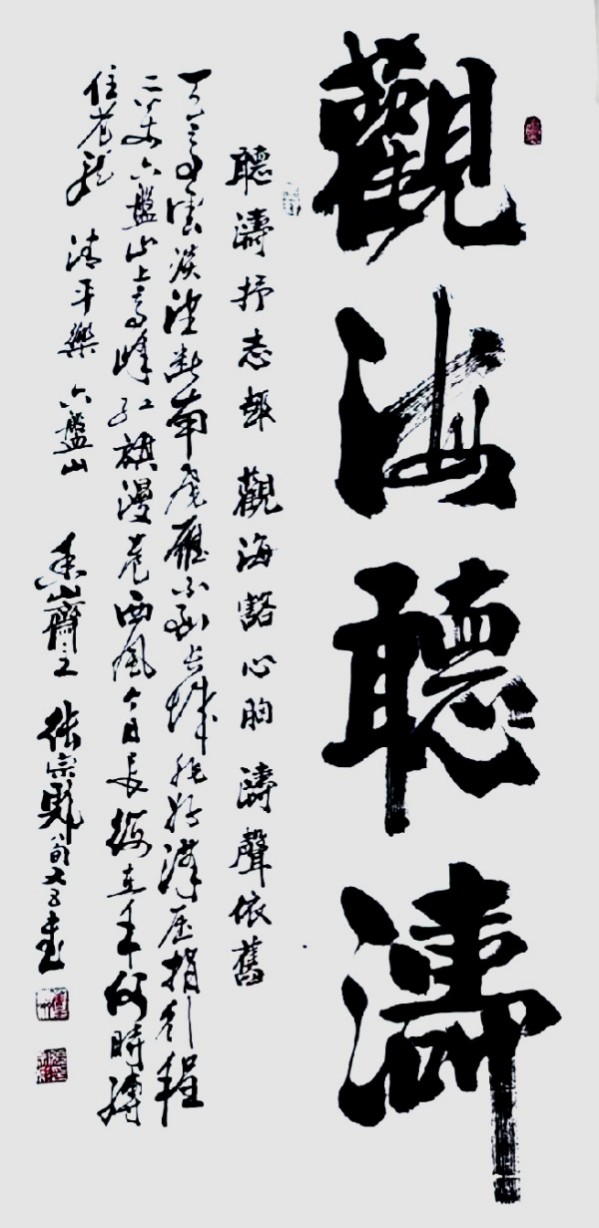 觀海聽濤
聽濤抒志趣 觀海豁心胸 濤聲依舊
天高雲淡望斷南飛雁不到長城非好漢屈指行程
二萬六盤山上高峰紅旗漫卷西風今日長纓在手何時縛
住蒼龍 清平樂 六盤山
山齋主 张宗 八旬又五書